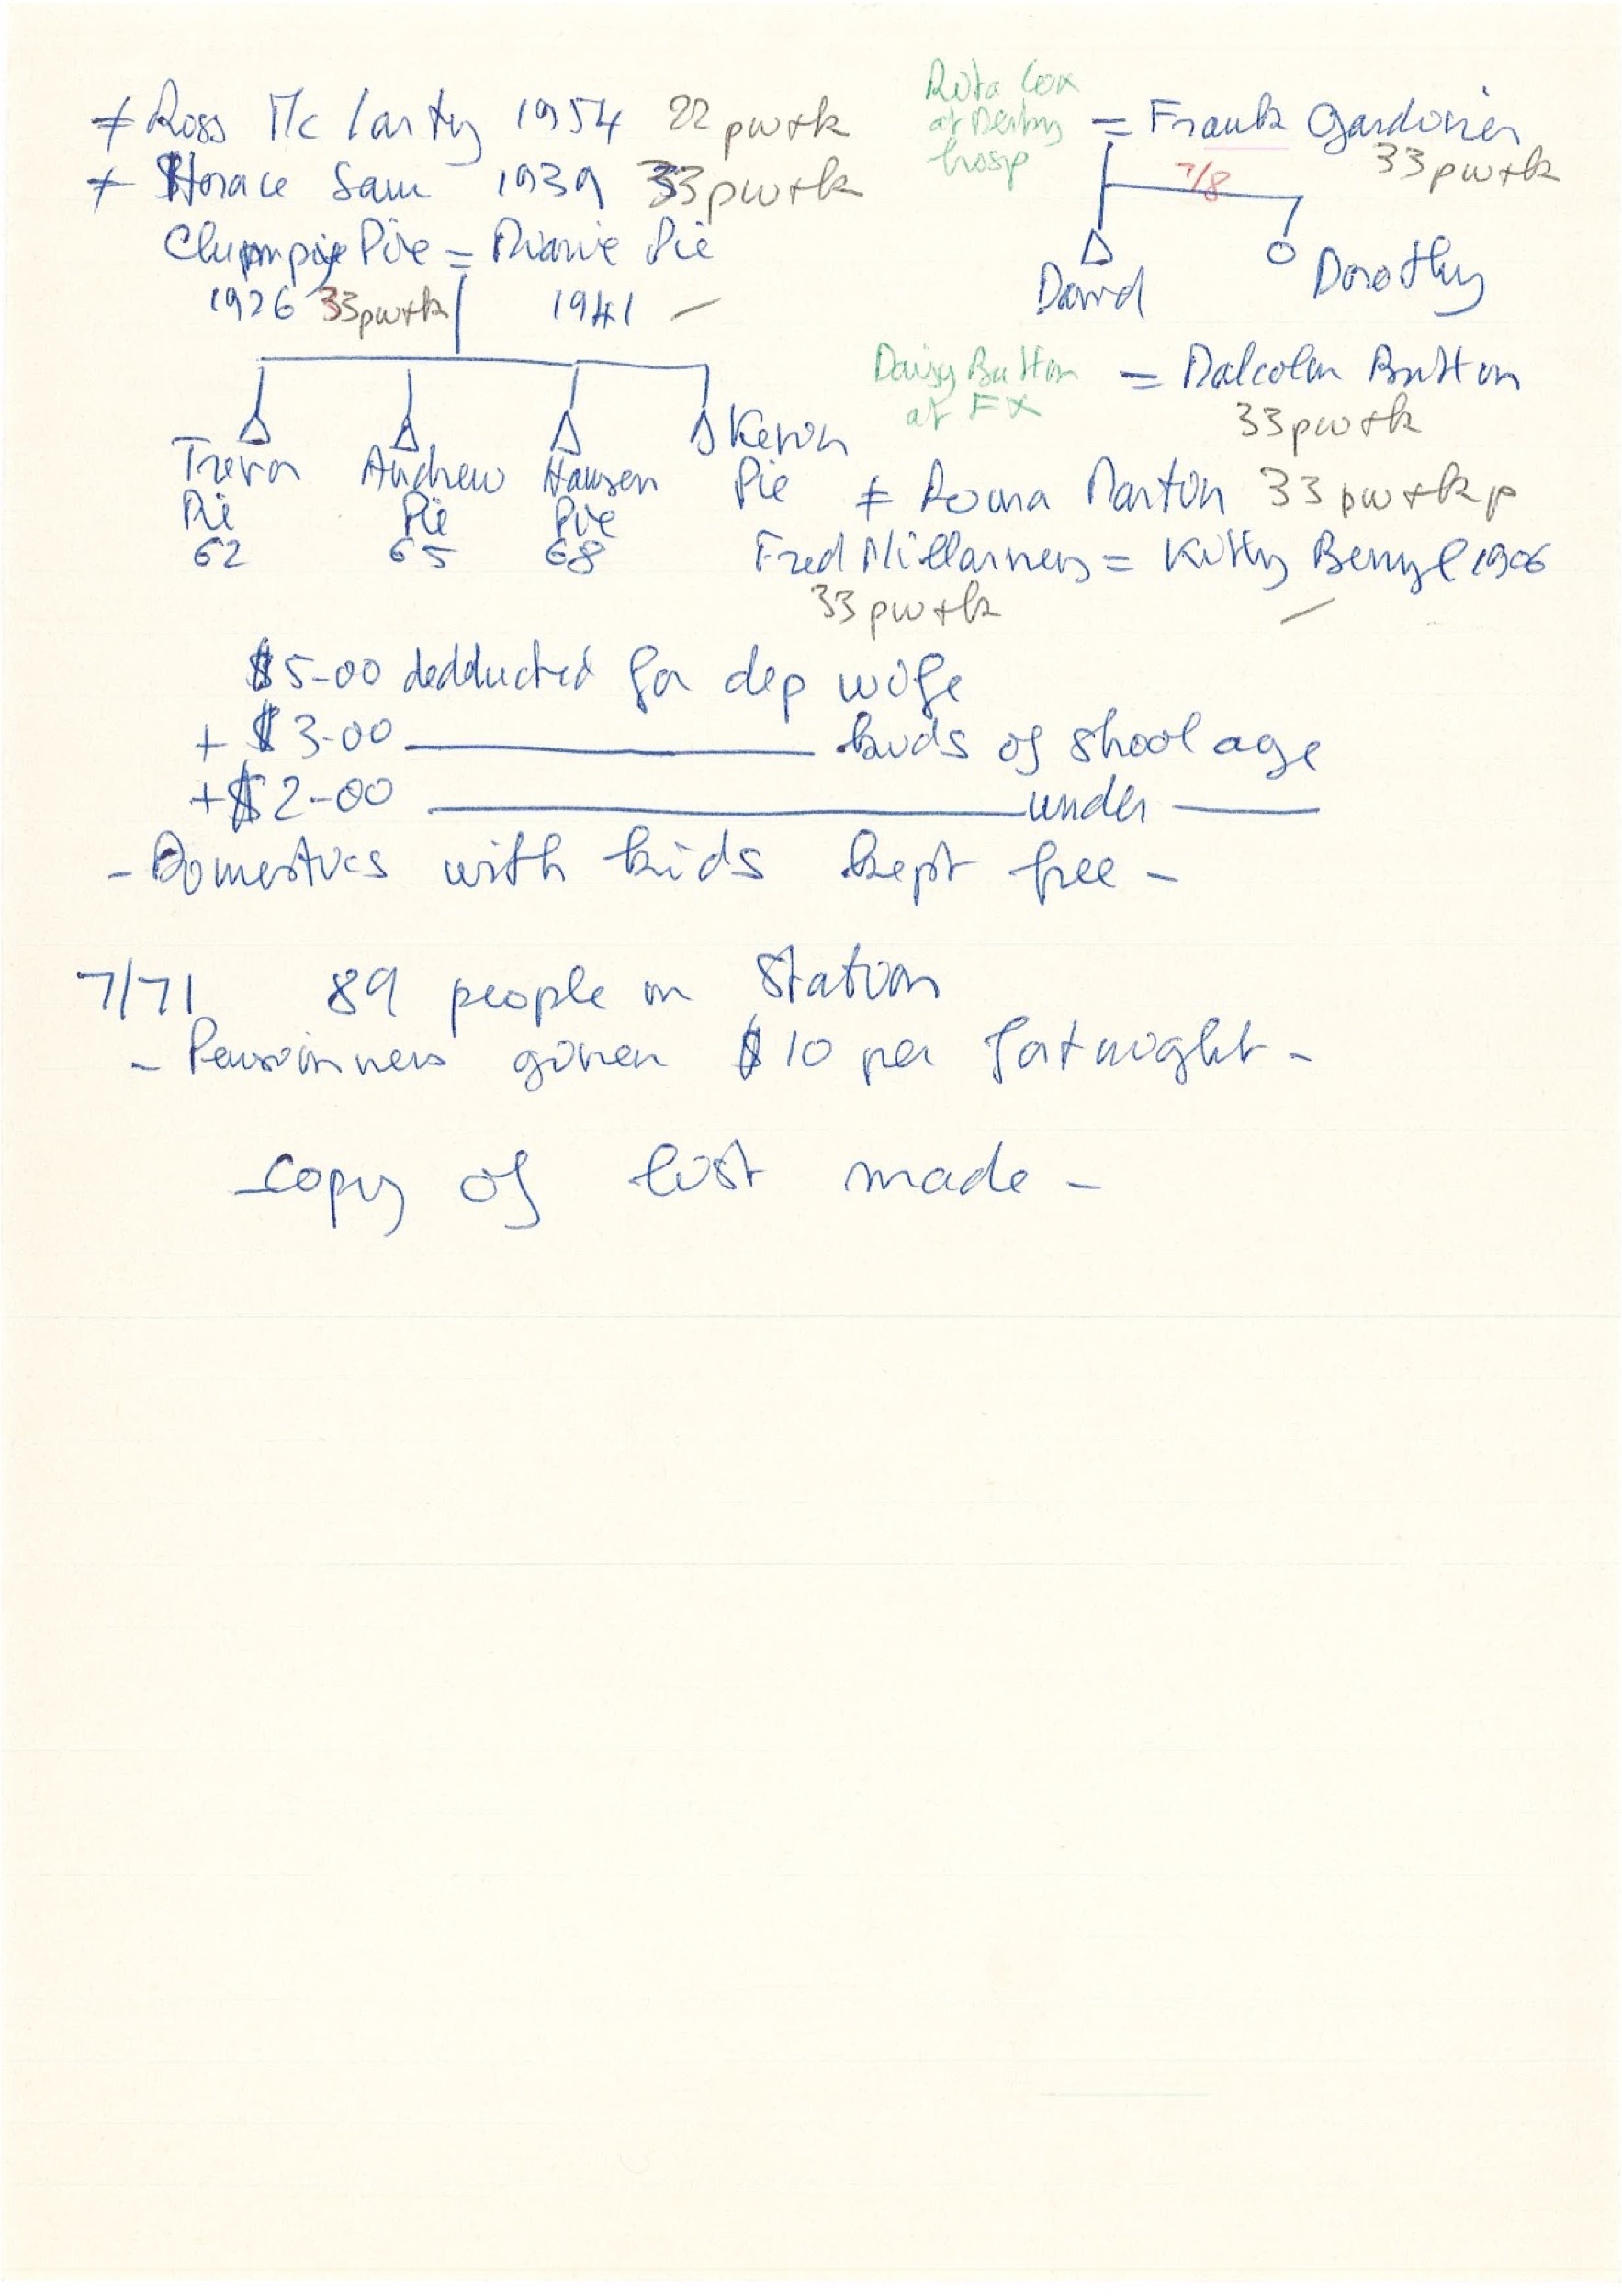 ≠ Ross Mc Larty 1954 22 pw+k
≠ Horace Sam 1939 33 pw+k
Clumpie Pie = Dianie Pie
1926 33 pw+k 1941 —
Trevor Pie 62
Andrew Pie 65
Hansen Pie 68
Kevin Pie
Rita Cox
at Derby
hosp
= Frank Gardinier
33 pw+k
7/8
David
Dorothy
Daisy Button
at FX
= Malcolm Button
33 pw+k
≠ Rouna Martin 33 pw+kp
Fred Millarners = Kitty Beryl 1906
33 pw+k —
$5-00 dedducted for dep wife
+ $3-00 ———— kids of shool age
+ $2-00 ———— under ——
- Domestics with kids kept free -
7/71 89 people on Station
- Pensioinners given $10 per fortnight -
- Copy of list made -